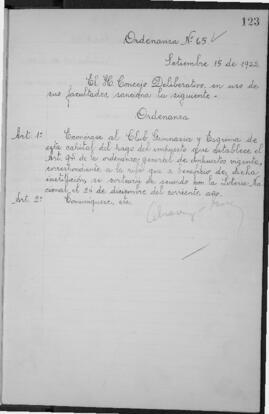 123
Ordenanza Nº 65
Setiembre 15 de 1922
El H. Concejo Deliberativo, en uso de
sus facultades sanciona la siguiente.-
Ordenanza
Art: 1º: Exonérase al Club Gimnasia y Esgrima de
esta capital del pago del impuesto que establece el
Art. de la ordenanza general de impuestos vigente,
correspondiente a la rifa que a beneficio de dicha
institución, se sorteará de acuerdo con la Lotería Na-
cional, el 24 de diciembre del corriente año.
Art. 2º: Comuníquese, etc.